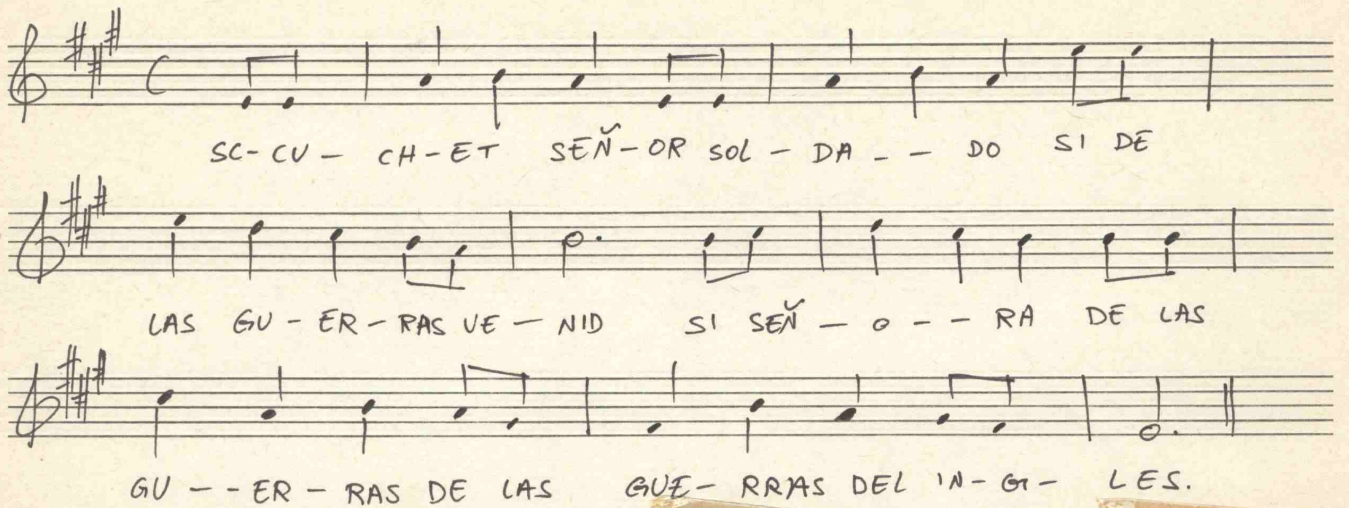 SC-CU- CH-ET SEÑ-OR SOL-DA -- DO SI DE
LAS GU-ER-RAS VE-NID SI SEÑ-O--RA DE LAS
GU--ER-RAS DE LAS GUE-RRAS DEL IN-G-LES.